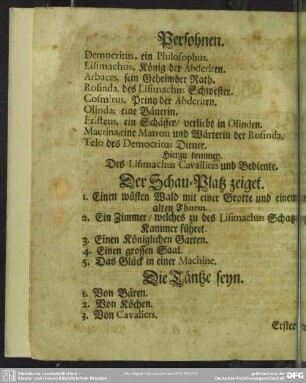 Persohnen.
Democritus, ein Philosophus.
Lisimachus, König der Abderiten.
Arbaces, sein Geheimder Rath.
Rosinda, des Lisimachus Schwester.
Cosmirus, Printz der Abderiten.
Olinda, eine Bäuerin.
Eristeus, ein Schäffer/ verliebt in Olinden.
Macrina, eine Matron und Wärterin der Rosinda.
Telo des Democritus Diener.
Hierzu kommen.
Des Lisimachus Cavalliers und Bediente.
Der Schau-Platz zeiget.
1. Einen wüsten Wald mit einer Grotte und einem
alten Thurm.
2. Ein Zimmer/ welches zu des Lisimachus Schatz-
Kammer führet.
3. Einen Königlichen Garten.
4. Einen grossen Saal.
5. Das Glück in einer Machine.
Die Täntze seyn.
1. Von Bären.
2. Von Köchen.
3. Von Cavaliers.
Erster